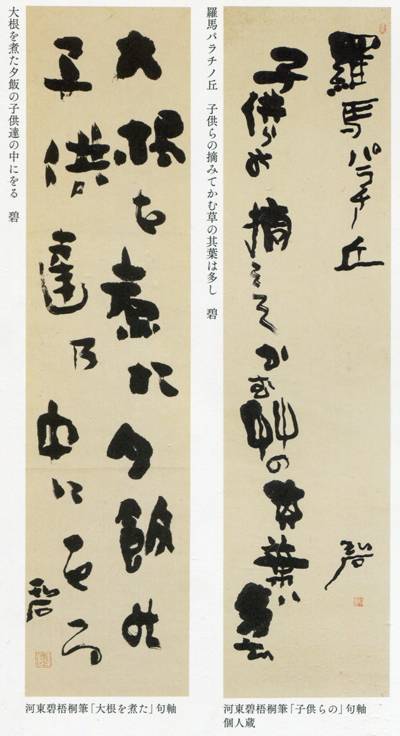 羅馬パラチノ丘　子供らの摘みてかむ草の其葉は多し　碧
羅馬パラチノ丘
子供らの摘みてかむ艸の其葉は多し
碧
河東碧梧桐筆「子供らの」句軸
個人蔵
大根を煮た夕飯の子供達の中にをる　碧
大根を煮た夕飯の
子供達乃中にをる
碧
河東碧梧桐筆「大根を煮た」句軸